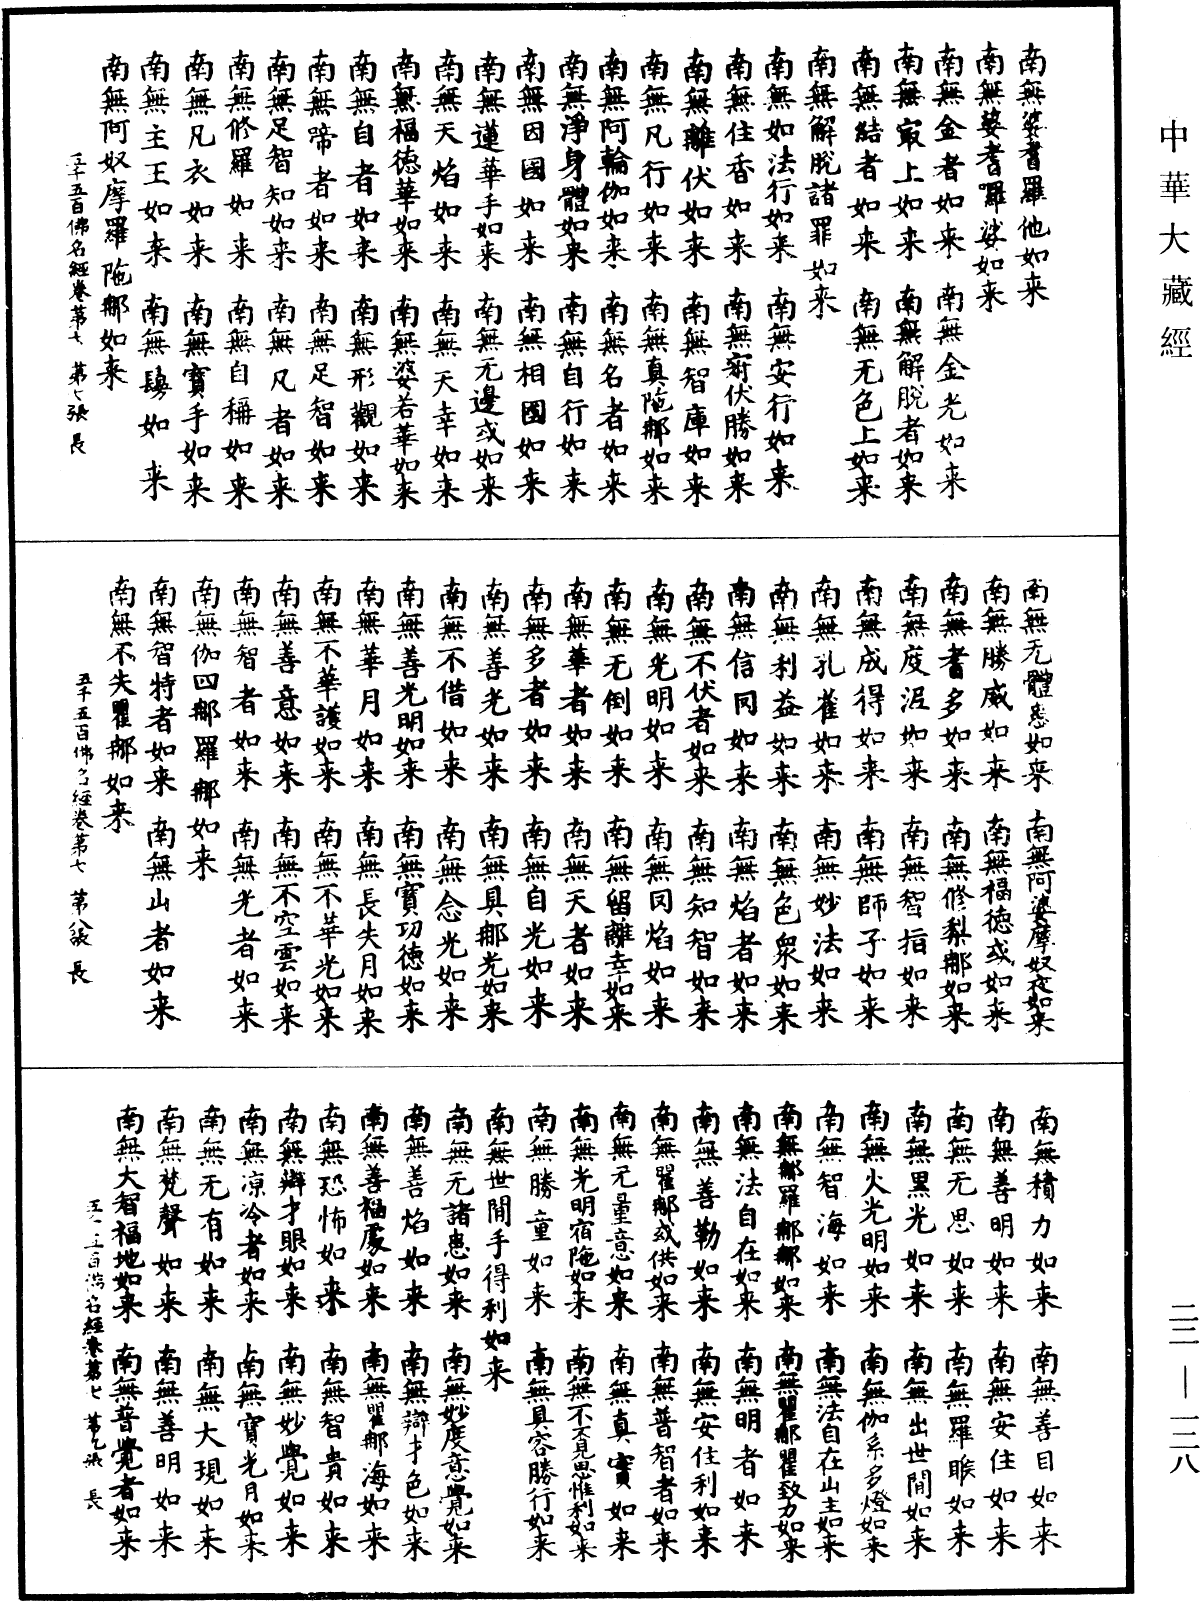 中華大藏經
南無婆耆羅他如来
南無婆耆囉娑如来
南無金者如来 南無金光如来
南無㝡上如来 南無解脫者如来
南無結者如来 南無无色上如来
南無解脫諸罪如来
南無如法行如来 南無安行如来
南無住香如来 南無䆠伏勝如来
南無離伏如来 南無智庫如来
南無凡行如来 南無真陁郍如来
南無阿輪伽如来 南無名者如来
南無淨身體如来 南無自行如来
南無因國如来 南無相國如来
南無蓮華手如来 南無无邊或如来
南無天焰如来 南無天幸如来
南無福德華如来 南無婆若華如来
南無自者如来 南無形觀如来
南無啼者如来 南無足智如来
南無足智知如来 南無凡者如来
南無修羅如来 南無自稱如来
南無凡衣如来 南無寶手如来
南無主王如来 南無如来
南無阿奴摩羅陁郍如来
五千五百佛名經卷第七 第七張 長
南無无體惡如来 南無阿婆摩奴夜如来
南無勝威如来 南無福德或如来
南無耆多如来 南無修梨郍如来
南無度泥如来 南無智指如来
南無成得如来 南無師子如来
南無孔雀如来 南無妙法如来
南無利益如来 南無色衆如来
南無信同如来 南無焰者如来
南無不伏者如来 南無知智如来
南無光明如来 南無同焰如来
南無无倒如来 南無留離幸如来
南無華者如来 南無天者如来
南無多者如来 南無自光如来
南無善光如来 南無具郍光如来
南無不借如来 南無念光如来
南無善光明如来 南無寶功德如来
南無華月如来 南無長失月如来
南無不華護如来 南無不華光如来
南無善意如来 南無不空雲如来
南無智者如来 南無光者如来
南無伽四郍羅郍如来
南無智特者如来 南無山者如来
南無不失瞿郍如来
五千五百佛名經卷第七 第八張 長
南無積力如来 南無善目如来
南無善明如来 南無安住如来
南無无思如来 南無羅睺如来
南無黑光如来 南無出世間如来
南無火光明如来 南無伽系多燈如来
南無智海如来 南無法自在山主如来
南無郍羅郍郍如来 南無瞿郍瞿致力如来
南無法自在如来 南無明者如来
南無善勒如来 南無安住利如来
南無瞿郍或供如来 南無普智者如来
南無无量意如来 南無真實如来
南無光明宿陁如来 南無不不見思惟利如来
南無勝童如来 南無具容勝行如来
南無世間手得利如来
南無无諸患如来 南無妙度意覺如来
南無善焰如来 南無辯才色如来
南無善福處如来 南無瞿郍海如来
南無恐怖如来 南無智貴如来
南無辯才眼如来 南無妙覺如来
南無凉冷者如来 南無寶光月如来
南無无有如来 南無大現如来
南無梵聲如来 南無善明如来
南無大智福地如来 南無普覺者如来
五千五百佛名經卷第七 第九張 長
二二—一三八